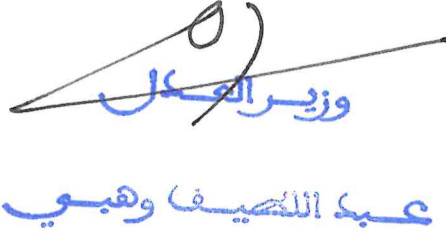 وزير العدل
عبد اللطيف وهبي